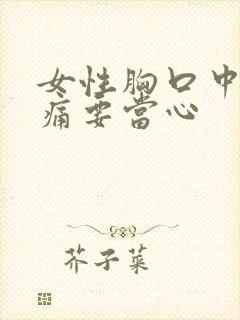 女性胸口中
痛要當心
芥子菜